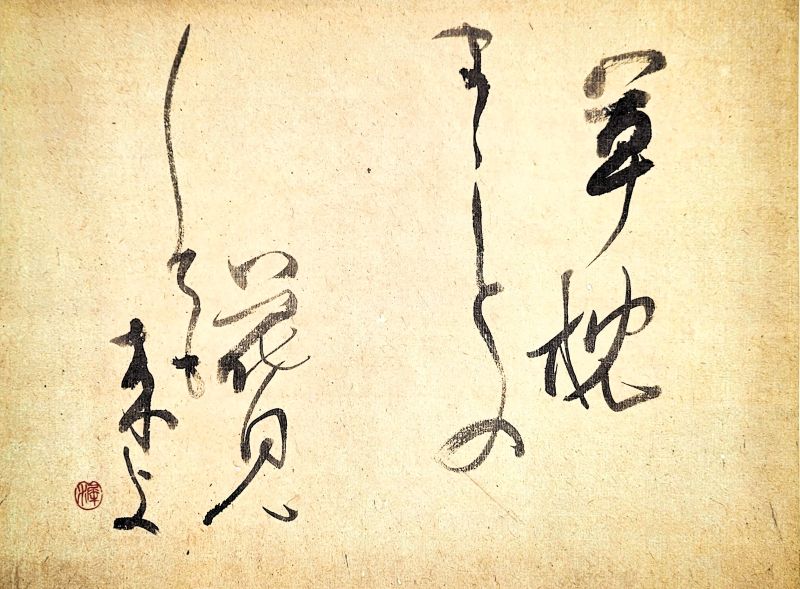 草枕
まことの
花見
しても
来よ